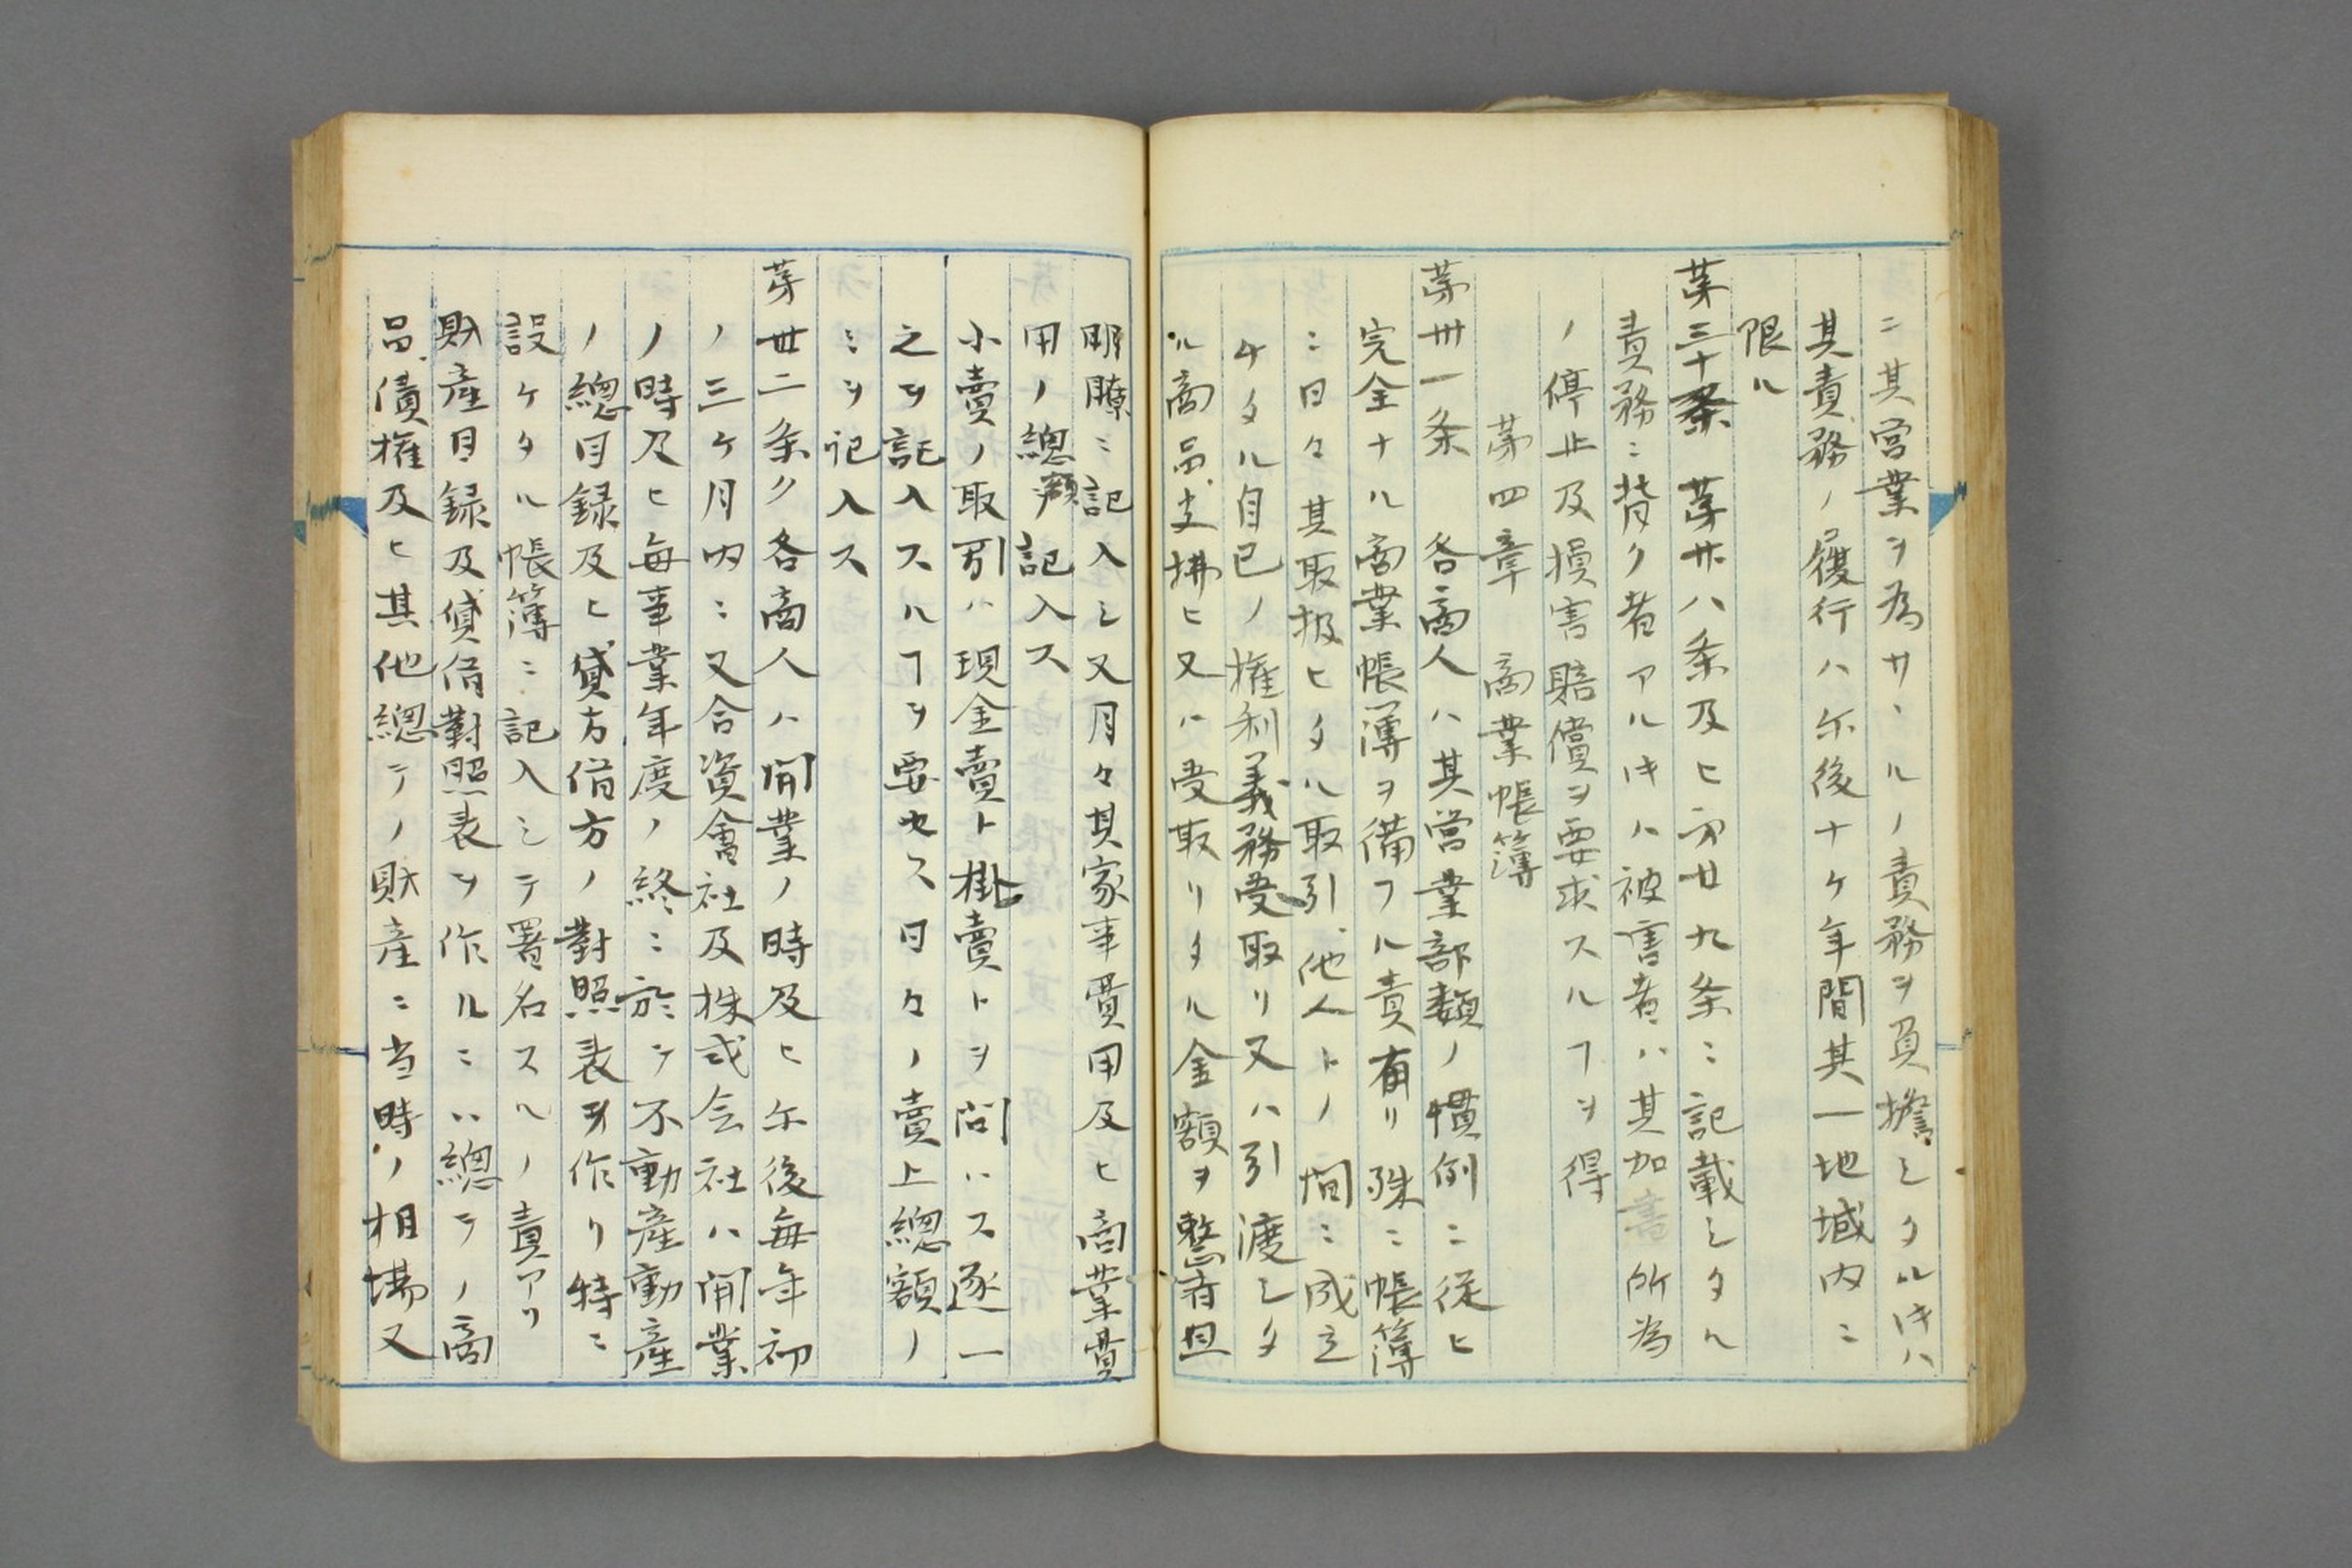 ニ其営業ヲ為サヽルノ責務ヲ負擔シタルキハ
其責務ノ履行ハ尓後十ケ年間其一地域内ニ
限ル
苐三十条 苐廿八条及ヒ㐧廿九条ニ記載シタル
責務ニ背ク者アルキハ被害者ハ其加害所為
ノ停止及損害賠償ヲ要求スルヿヲ得
苐四章 商業帳簿
苐卅一条 各商人ハ其営業部類ノ慣例ニ従ヒ
完全ナル商業帳簿ヲ備フル責有リ殊ニ帳簿
ニ日々其取扱ヒタル取引、他人トノ間ニ成立
チタル自己ノ権利義務受取リ又ハ引渡シタ
ル商品、支拂ヒ又ハ受取リタル金額ヲ整斉且
明瞭ニ記入シ又月々其家事費用及ヒ商業費
用ノ総額記入ス
小賣ノ取引ハ現金賣ト掛賣トヲ問ハス逐一
之ヲ記入スルヿヲ要セス日々ノ賣上総額ノ
ミヲ記入ス
苐卅二条 各商人ハ開業ノ時及ヒ尓後毎年初
ノ三ケ月内ニ又合資會社及株式会社ハ開業
ノ時及ヒ毎事業年度ノ終ニ於テ不動産動産
ノ総目録及ヒ貸方借方ノ對照表ヲ作リ特ニ
設ケタル帳簿ニ記入シテ署名スルノ責アリ
財産目録及貸借對照表ヲ作ルニハ総テノ商
品、債権及ヒ其他総テノ財産ニ当時ノ相場又